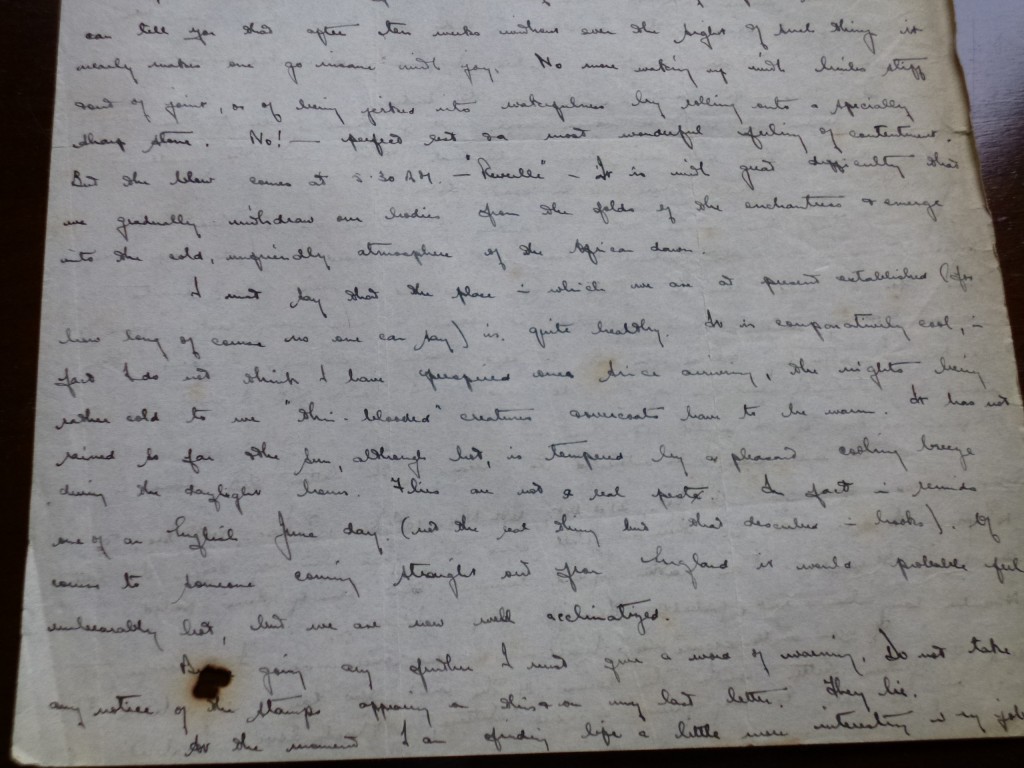 can tell you that after ten weeks without even the sight of such things it
nearly makes one go insane with joy. No more waking up with limbs stiff
and of joint, or of being jerked into wakefulness by rolling onto a specially
sharp stone. No! — perfect rest & a most wonderful feeling of contentment.
But the blow comes at 5.30 A.M. — "Reveille" — It is with great difficulty that
we gradually withdraw our bodies from the folds of the enchantress & emerge
into the cold, unfriendly atmosphere of the African dawn.
I must say that the place in which we are at present established (for
how long of course no one can say) is quite healthy. It is comparatively cool, in
fact I do not think I have perspired once since arriving, the nights being
rather cold to we "thin-blooded" creatures overcoats have to be worn. It has not
rained so far & the sun, although hot, is tempered by a pleasant cooling breeze
during the daylight hours. Flies are not a real pest. In fact it reminds
one of an English June day (not the real thing but that described in books). Of
course to someone coming straight out from England it would probably feel
unbearably hot, but we are now well acclimatized.
going any further I must give a word of warning. Do not take
any notice of the stamps appearing on this & on my last letter. They lie.
At the moment I am finding life a little more interesting as my job